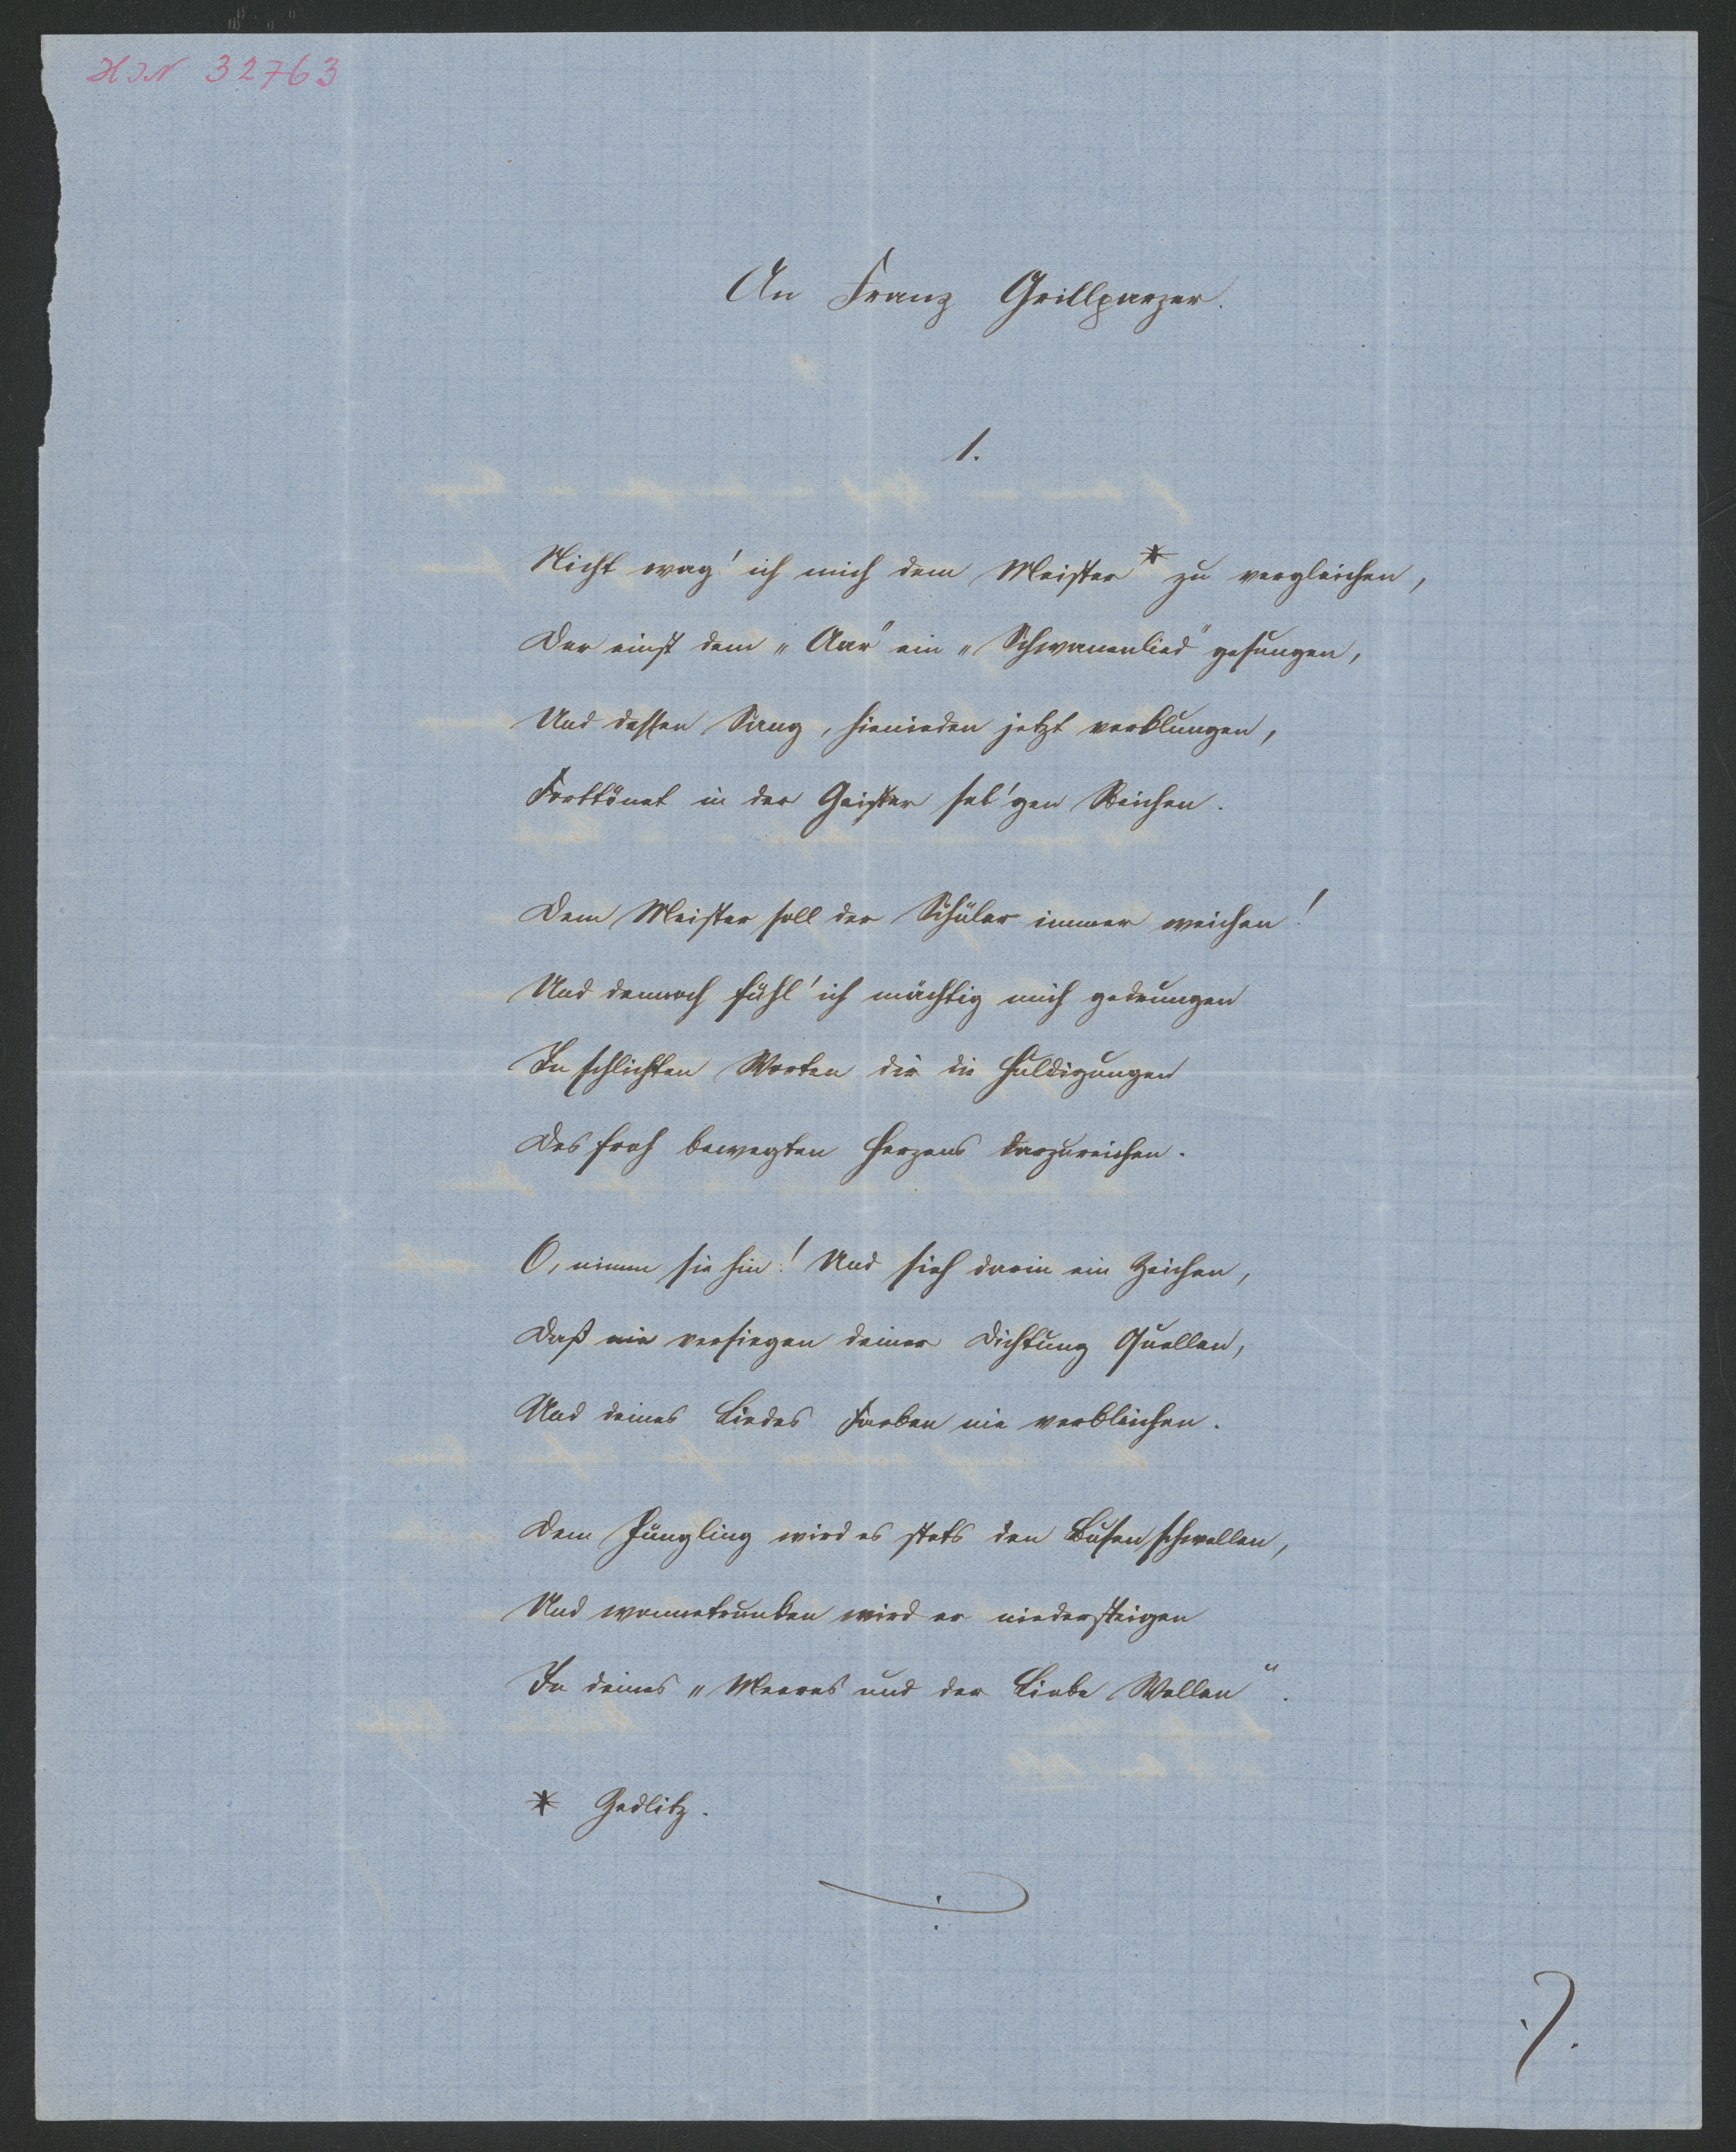 HIN 32763
An Franz Grillparzer.
1.
Nicht wag' ich mich dem Meister* zu vergleichen,
Der einst dem „Aar" ein „Schwanenlied" gesungen,
Und dessen Sang, hienieden jetzt verklungen,
Forttönet in der Geister sel'gen Reichen.
Dem Meister soll der Schüler immer weichen!
Und dennoch fühl' ich mächtig mich gedrungen
In schlichten Worten dir die Huldigungen
Des froh bewegten Herzens darzureichen.
O, nimm sie hin! Und sieh darin ein Zeichen,
Daß nie versiegen deiner Dichtung Quellen,
Und deines Liedes Farben nie verbleichen.
Dem Jüngling wird es stets den Busen schwellen,
Und wonnetrunken wird er niedersteigen
In deines „Meeres und der Liebe Wellen".
* Zedlitz.